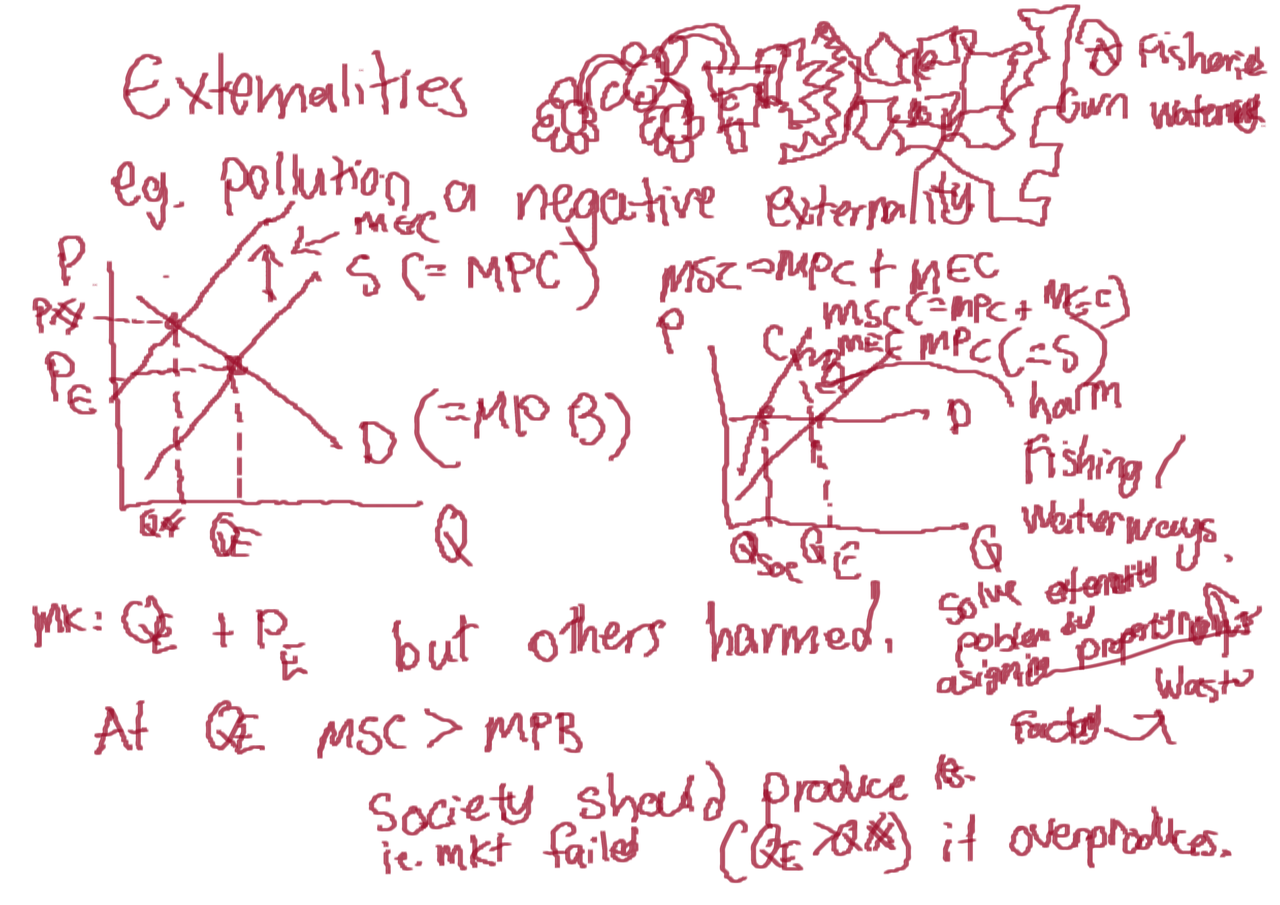 Externalities
eg. pollution a negative externality
A Fisherie
Own Waterway
MEC
P
S (= MPC)
P*
PE
D (=MPB)
Q* QE Q
MSC = MPC + MEC
P
MSC (=MPC + MEC)
MEC MPC (=S)
D
QSOC QE Q
harm
Fishing /
Waterways.
Solve
assigning property rights
Waste
Factory
MK: QE + PE but others harmed.
At QE MSC > MPB
Society should produce
ie. mkt failed (QE > Q*) it overproduces.